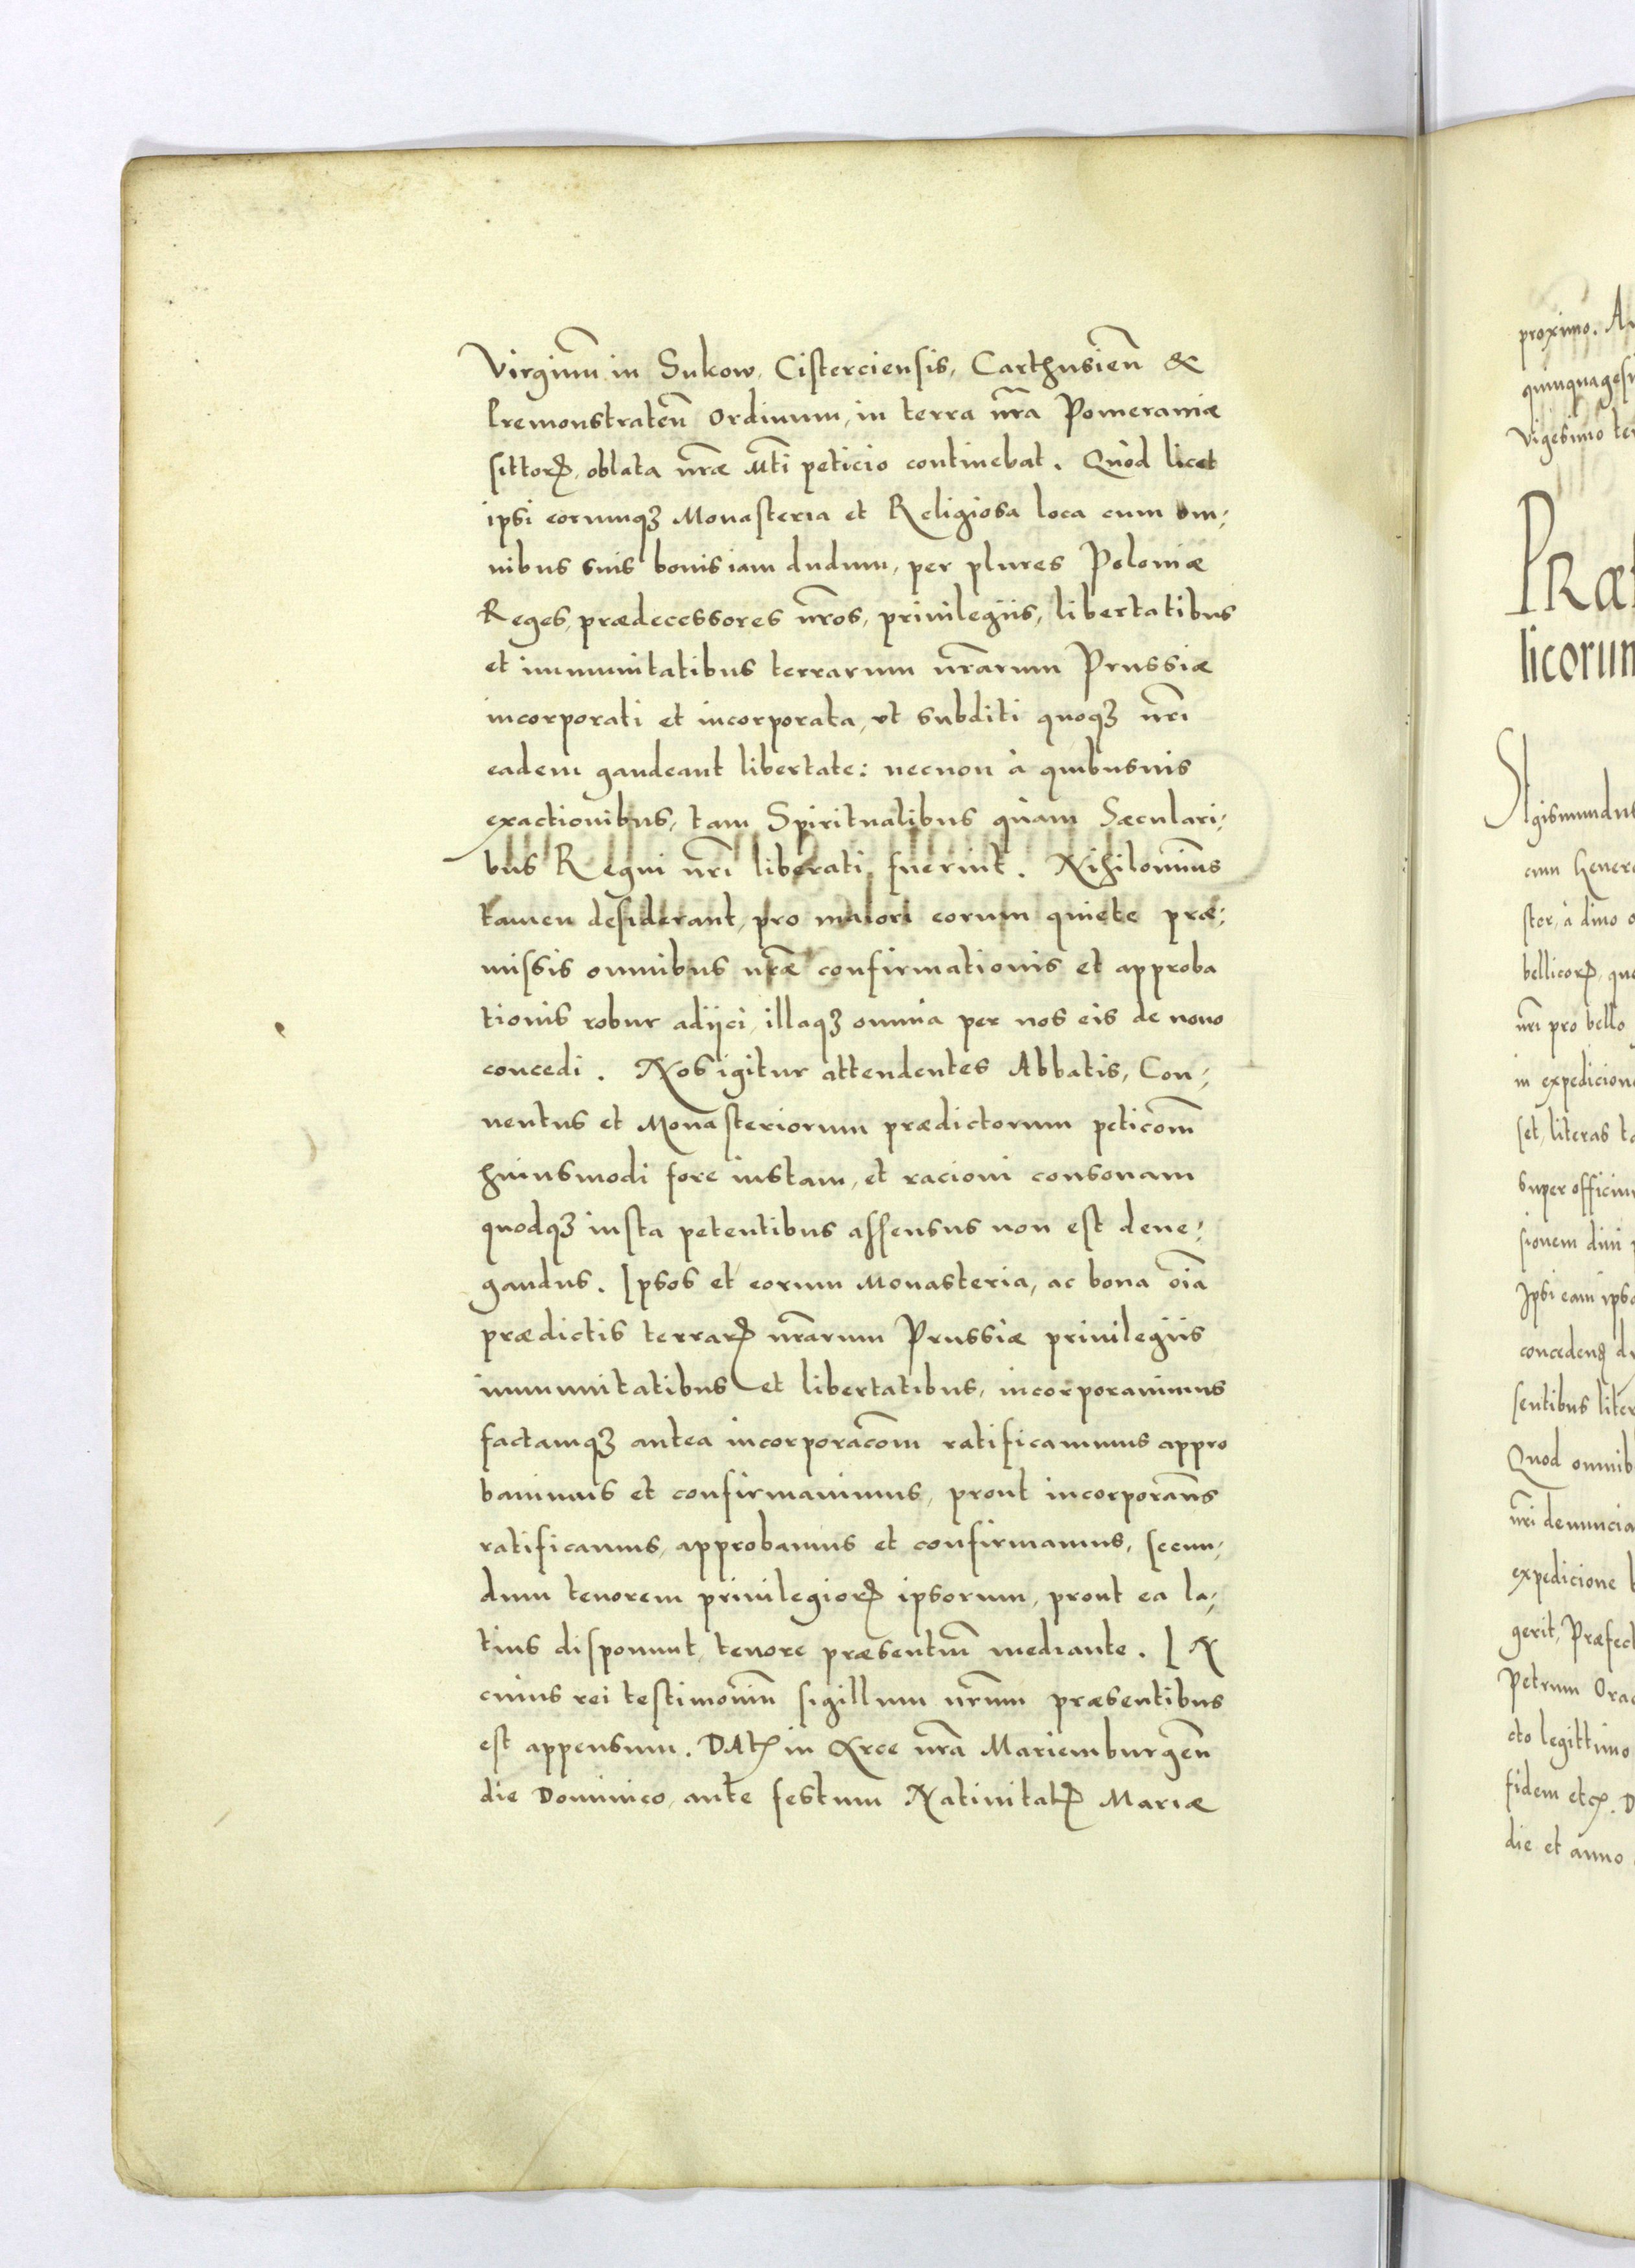 Virginũ in Sukow, Cisterciensis, Carthusieñ &
Premonstrateñ Ordinum, in terra nr̃a Pomeraniæ
sittorꝝ, oblata nr̃æ Mti peticio continebat. Quòd licet
ipsi eorumqꝫ Monasteria et Religiosa loca cum om⸗
nibus suis bonis iam dudum, per plures Poloniæ
Reges, prædecessores nr̃os, priuilegijs, libertatibus
et immunitatibus terrarum nr̃arum Prussiæ
incorporati et incorporata, vt subditi quoqꝫ nr̃i
eadem gaudeant libertate: necnon à quibusuis
exactionibus, tam Spiritualibus quàm Sæculari⸗
bus Regni nr̃i liberati fuerint. Nihilominus
tamen desiderant, pro maiori eorum quiete præ⸗
missis omnibus nr̃æ confirmationis et approba
tionis robur adijci, illaqꝫ omnia per nos eis de nouo
concedi. Nos igitur attendentes Abbatis, Con⸗
uentus et Monasteriorum prædictorum peticom̃
huiusmodi fore iustam, et racioni consonam
quodqꝫ iusta petentibus assensus non est dene⸗
gandus. Ipsos et eorum Monasteria, ac bona oĩa
prædictis terrarꝝ nr̃arum Prussiæ priuilegijs
immunitatibus et libertatibus, incorporauimus
factamqꝫ antea incorporacom̃ ratificauimus appro
bauimus et confirmauimus, prout incorporam̃s
ratificamus, approbamus et confirmamus, secun⸗
dum tenorem priuilegiorꝝ ipsorum, prout ea la⸗
tius disponunt, tenore præsentiũ mediante. IN
cuius rei testimoniũ sigillum nr̃um præsentibus
est appensum. DAtꝭ in Arce nr̃a Mariemburgeñ
die Dominico, ante festum Natiuitatꝭ Mariæ
proximo. A
quinquagesi
Vigesimo ter
PRæf
licorum
SIgismundus
cum Genero
stor, à diuo
bellicorꝝ, qu
nr̃i pro bello
in expedicion
set, literas ta
super officiu
sionem diui
Ipsi eam ipsa
concedenꝭ d
sentibus liter
Quod omnib
nr̃i denuncia
expedicione
gerit, Præfect
Petrum Ora
cto legittimo
fidem etcꝭ. D
die et anno